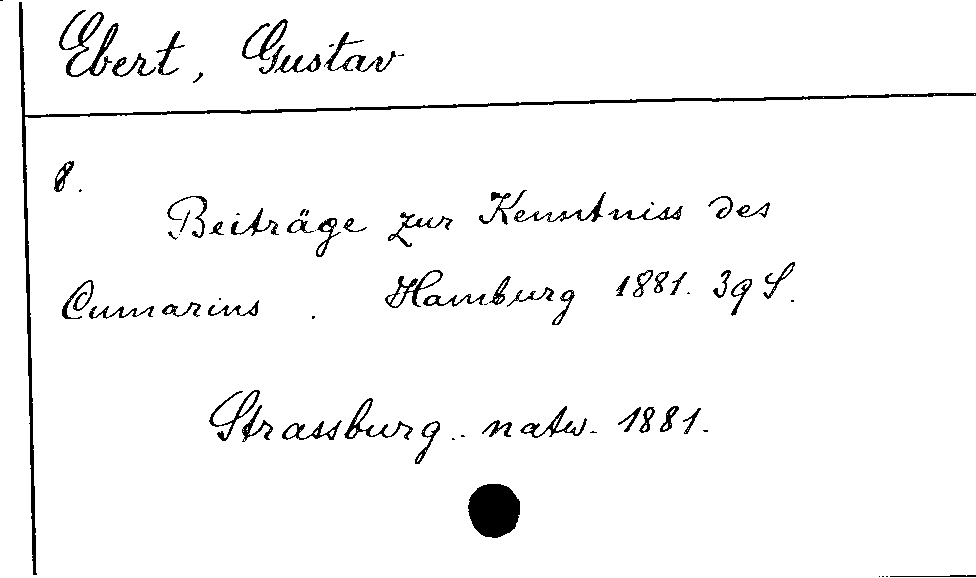 Ebert, Gustav
8.
Beiträge zur Kenntniss des
Cumarins . Hamburg 1881. 39 S.
Strassburg.. natw. 1881.